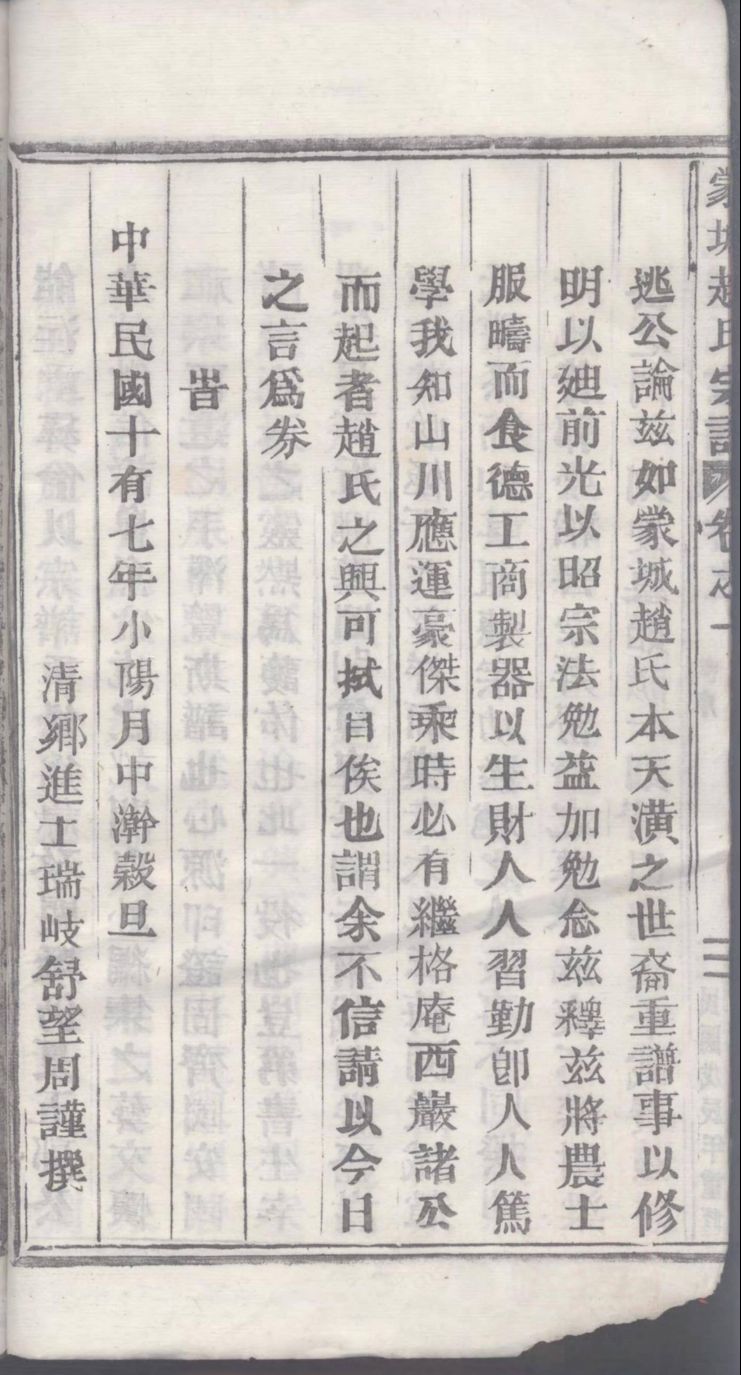 蒙城趙氏宗譜 卷之一
逃公論兹如蒙城趙氏本天潢之世裔重譜事以修
明以廸前光以昭宗法勉益加勉念兹釋兹將農士
服疇而食德工商製器以生財人人習勤卽人人篤
學我知山川應運豪傑乘時必有繼格庵西巖諸公
而起者趙氏之興可拭目俟也謂余不信請以今日
之言爲券
旹
中華民國十有七年小陽月中澣穀旦
清鄉進士瑞岐舒望周謹撰